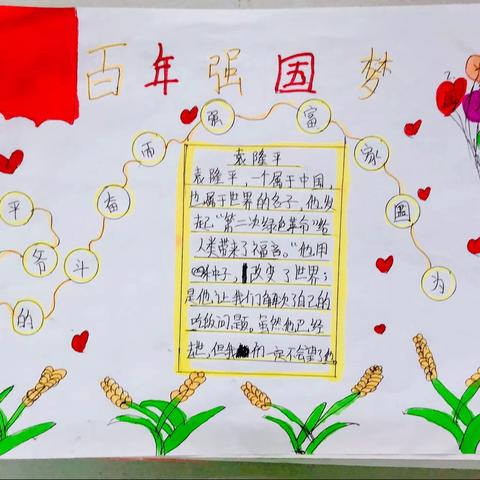 百年强国梦
为国家富强而奋斗
平
爷
的
袁隆平
袁隆平，一个属于中国，
也属于世界的名子，他发
起"第二次绿色革命"给
人类带来了福音。"他用
种子，改变了世界；
是他，让我们解决了自己的
吃饭问题，虽然他已经
去世，但我们一定不会望了他